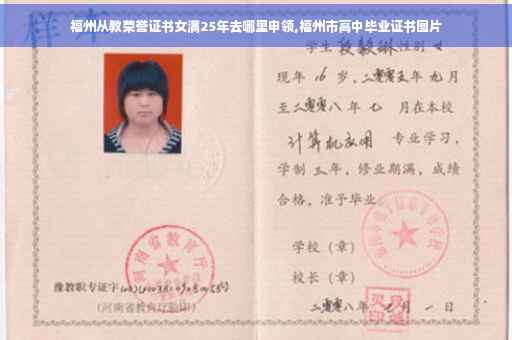 福州从教荣誉证书女满25年去哪里申领,福州市高中毕业证书图片
样本
学生段毅琳性别女
现年16岁,二零零五年九月
至二零零八年七月在本校
计算机应用 专业学习,
学制三年,修业期满,成绩
合格,准予毕业
学校(章)
校长(章)
二零零八年七月一日
河南省教育厅
豫教职专证字
(河南省教育厅验印)